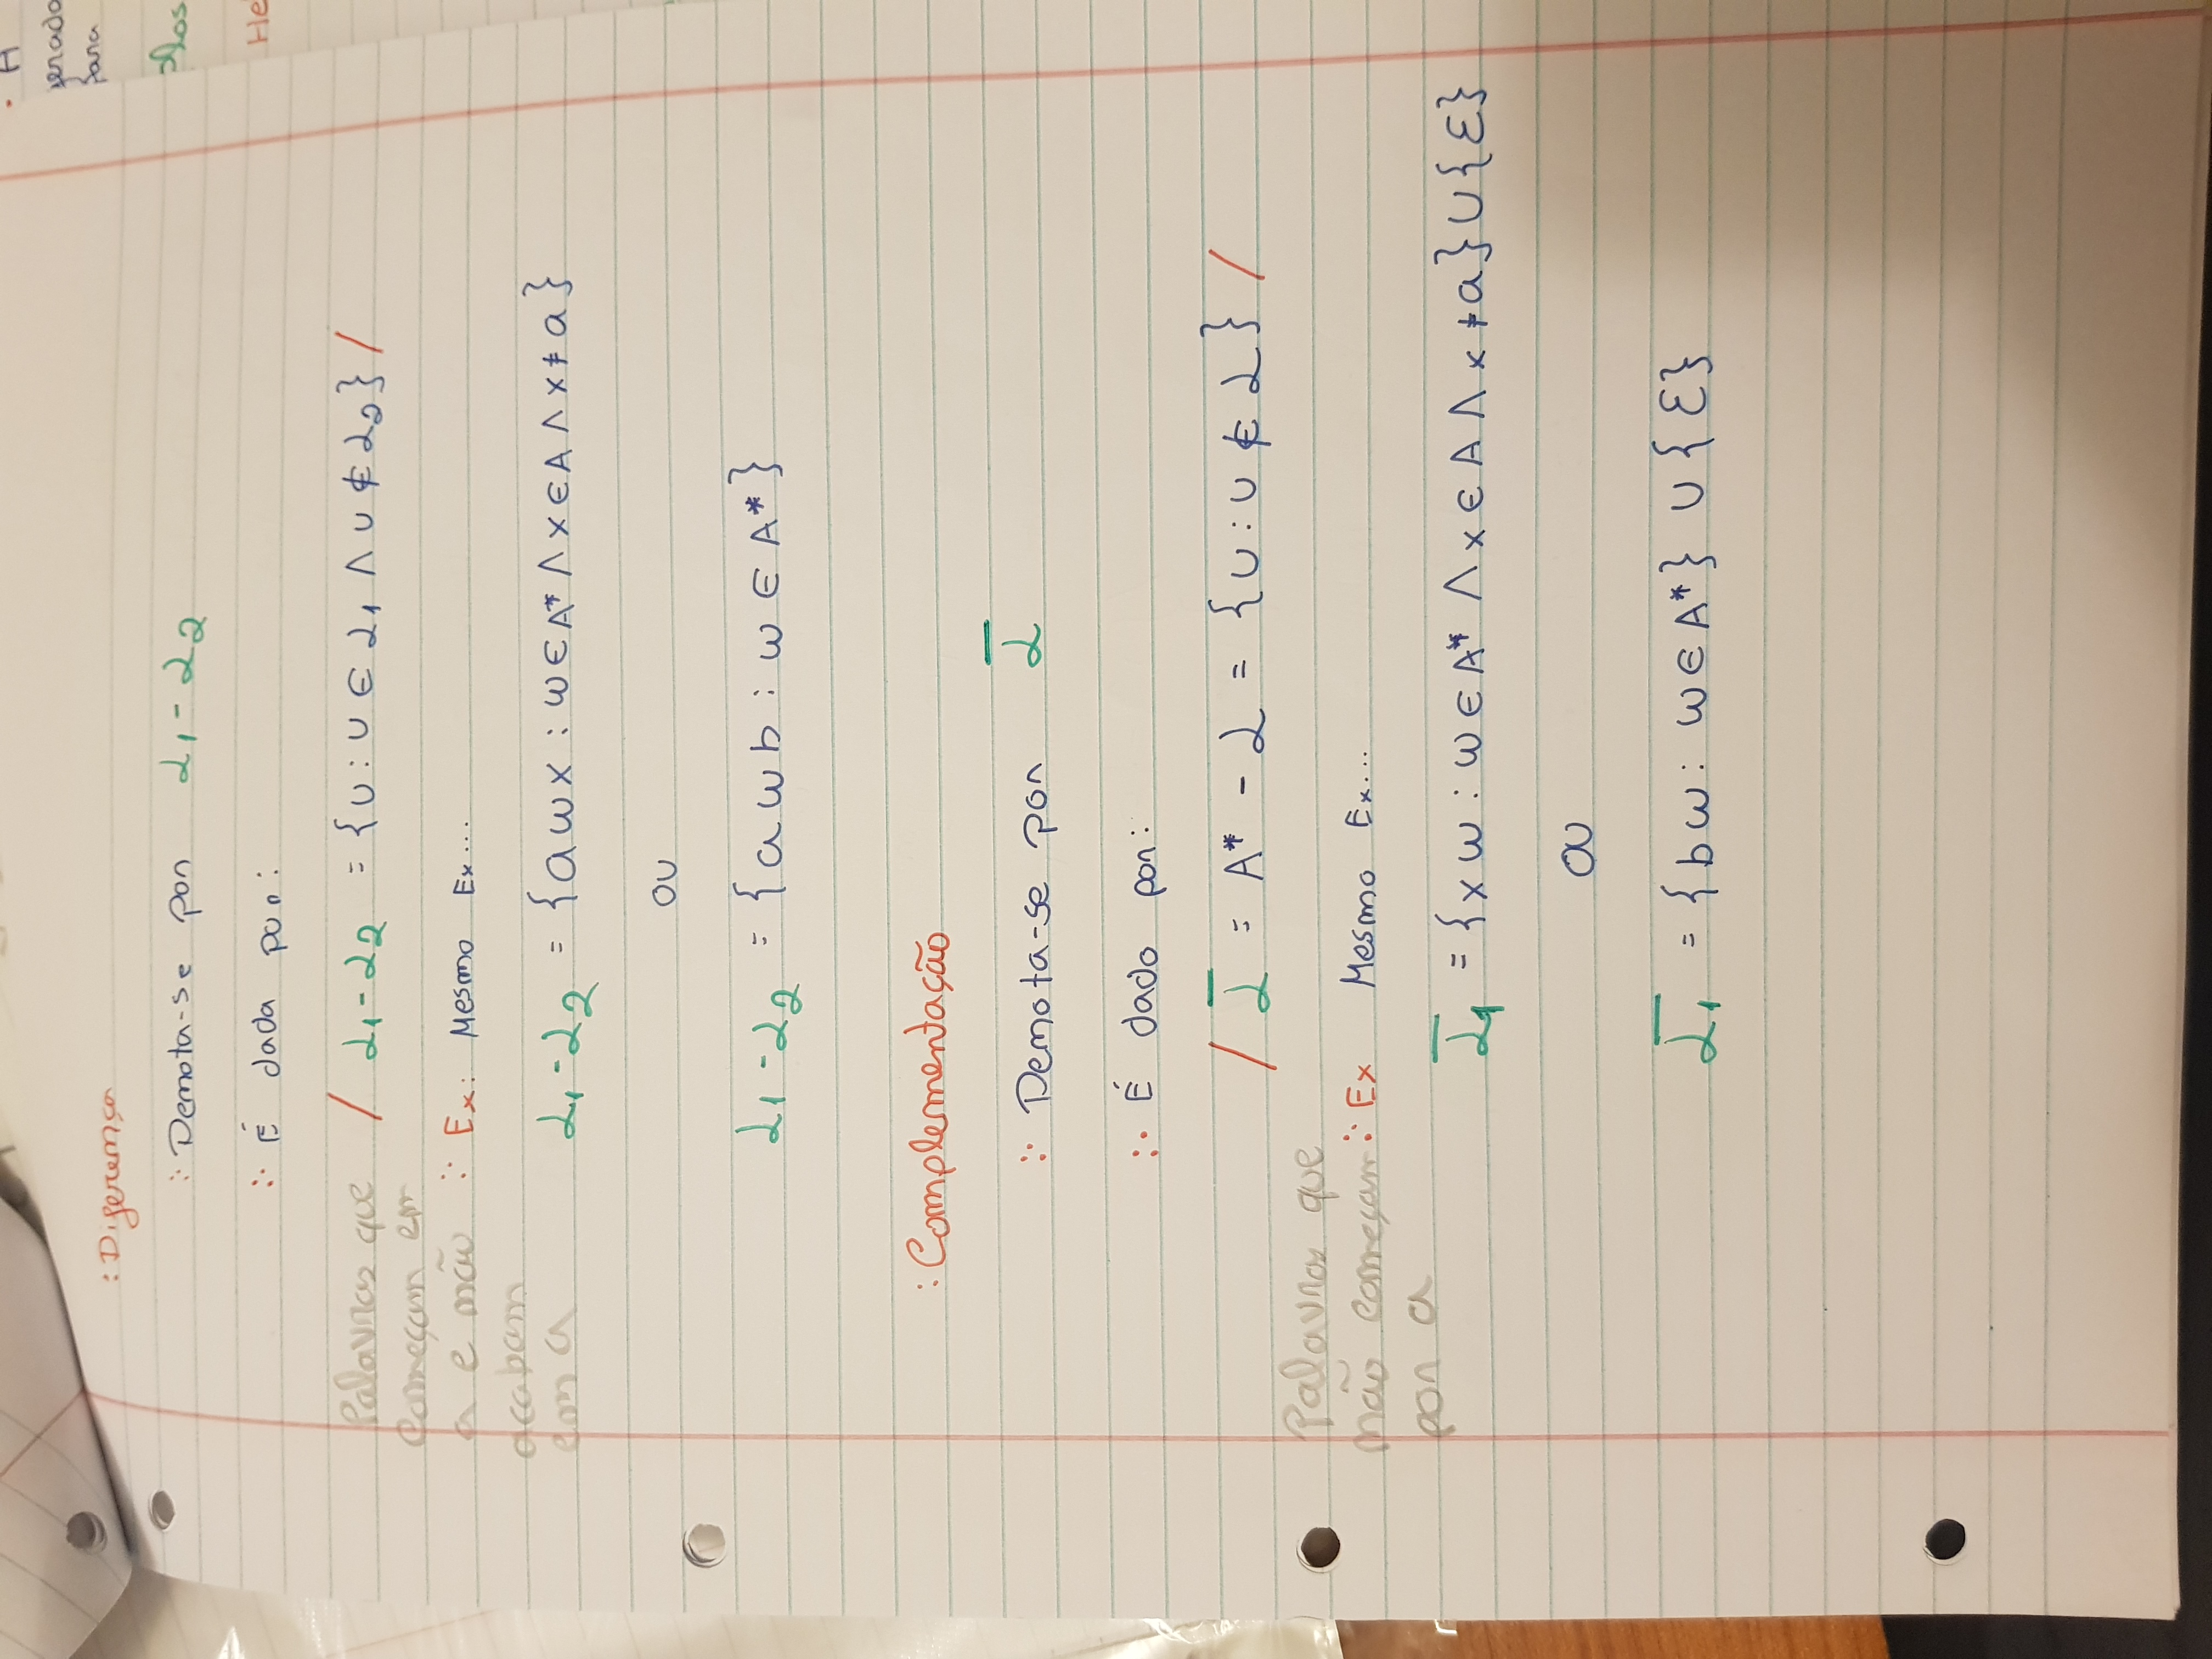 : Diferença
∵ Denota-se por L₁ - L₂
∵ É dada por:
Palavras que
começam em
a e não
acabam
em a
/ L₁ - L₂ = {u : u ∈ L₁ ∧ u ∉ L₂} /
∵ Ex: Mesmo Ex...
L₁ - L₂ = {awx : w ∈ A* ∧ x ∈ A ∧ x ≠ a}
ou
L₁ - L₂ = {awb : w ∈ A*}
: Complementação
∵ Denota-se por L̅
∵ É dado por:
/ L̅ = A* - L = {u : u ∉ L} /
Palavras que
não começam
por a
∵ Ex Mesmo Ex...
L̅₁ = {xw : w ∈ A* ∧ x ∈ A ∧ x ≠ a} ∪ {ε}
ou
L̅₁ = {bw : w ∈ A*} ∪ {ε}
• A
gerado
para